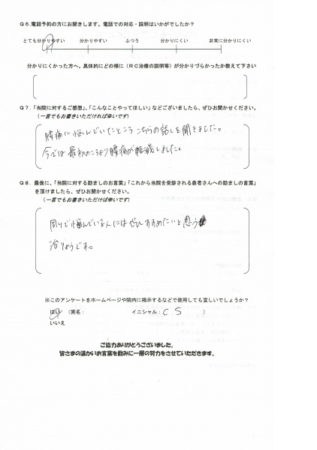 Q6.電話予約の方にお聞きします。電話での対応・説明はいかがでしたか？
とても分かりやすい 分かりやすい ふつう 分かりにくい 非常に分かりにくい
分かりにくかった方へ、具体的にどの様に（RC治療の説明等）が分かりづらかったか教えて下さい
Q7.「当院に対するご感想」、「こんなことやってほしい」などございましたら、ぜひお聞かせください。
（一言でもお書きいただければ幸いです）
腰痛に悩んでいたところこちらの話しを聞きました。
今では最初のころより腰痛が軽減しました。
Q8.最後に、「当院に対する励ましのお言葉」「これから当院を受診される患者さんへの励ましの言葉」
を頂けましたら、ぜひお聞かせください。
（一言でもお書きいただけば幸いです）
周りで悩んでいる人にはぜひすすめたいと思う
治りょうです。
※このアンケートをホームページや院内に掲示するなどで使用しても宜しいでしょうか？
はい （実名： イニシャル： C S ）
いいえ
ご協力ありがとうございました。
皆さまの温かいお言葉を励みに一層の努力をさせていただきます。